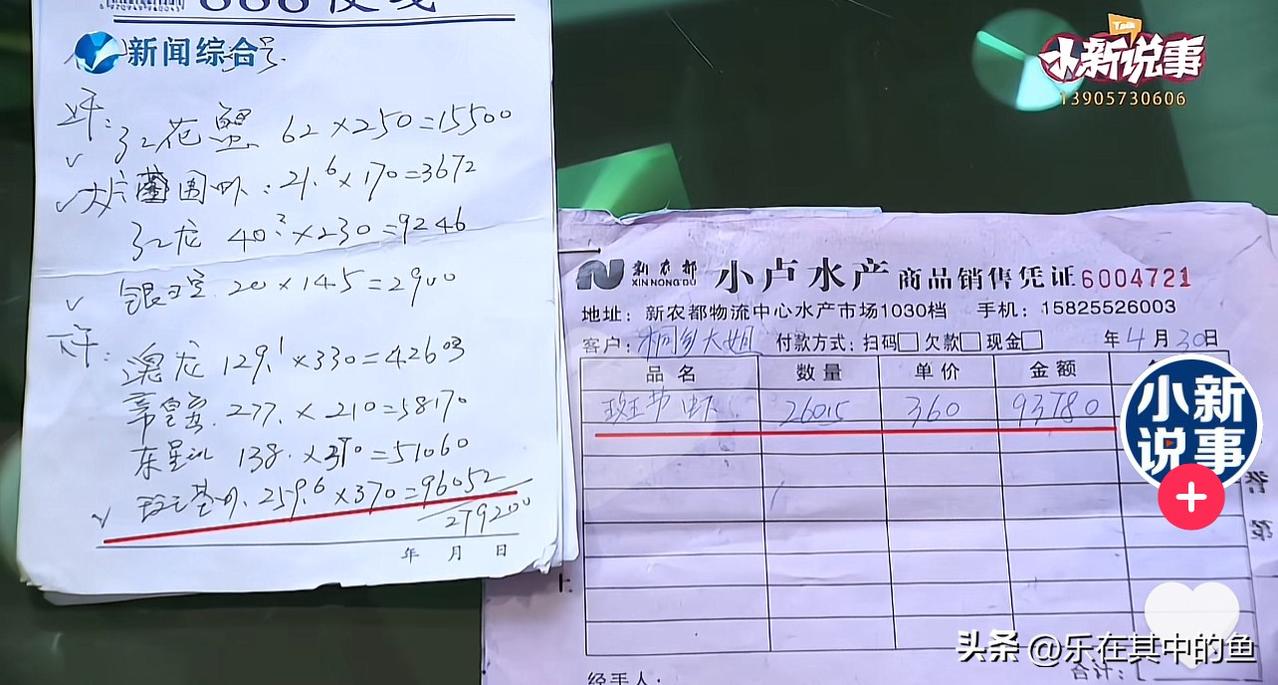 新闻综合
红花蟹 62×250=15500
21.6×170=3672
红龙 40.2×230=9246
20×145=2900
澳龙 129.1×330=42603
277.×210=58170
东星 138.×370=51060
259.6×370=96052
279200
年 月 日
Talk
小新说事
13905730606
新农都
XIN NONG DU
小卢水产 商品销售凭证 6004721
地址：新农都物流中心水产市场1030档 手机：15825526003
客户：桐乡大姐 付款方式：扫码□ 欠款□ 现金□ 年4月30日
品名 数量 单价 金额
斑节虾 260.5 360 93780
小新说事
经手人：
合计：
头条 @乐在其中的鱼